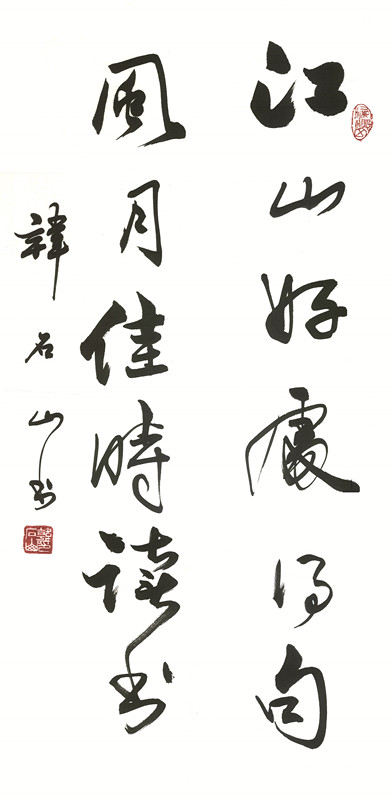 江山好處得句
風月佳時讀書
韓石山書